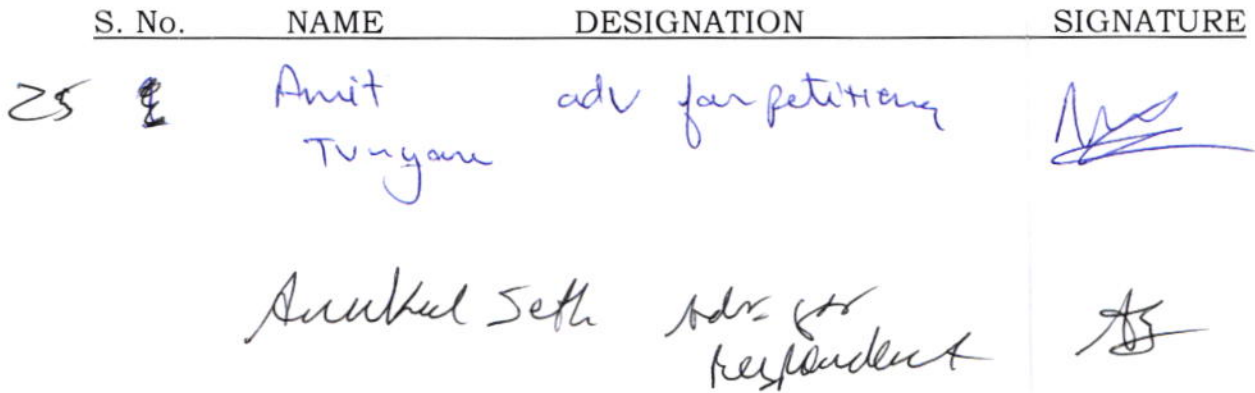 S. No. NAME DESIGNATION SIGNATURE
25 Amit adv for petitioner
Anukul Seth Adv. for
respondent